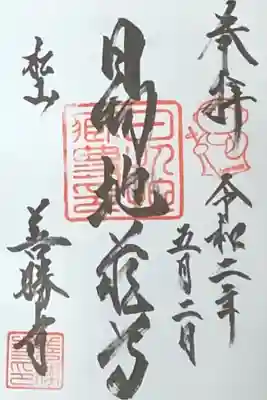 奉拝
令和二年
五月二日
日切地蔵尊
松山
善勝寺